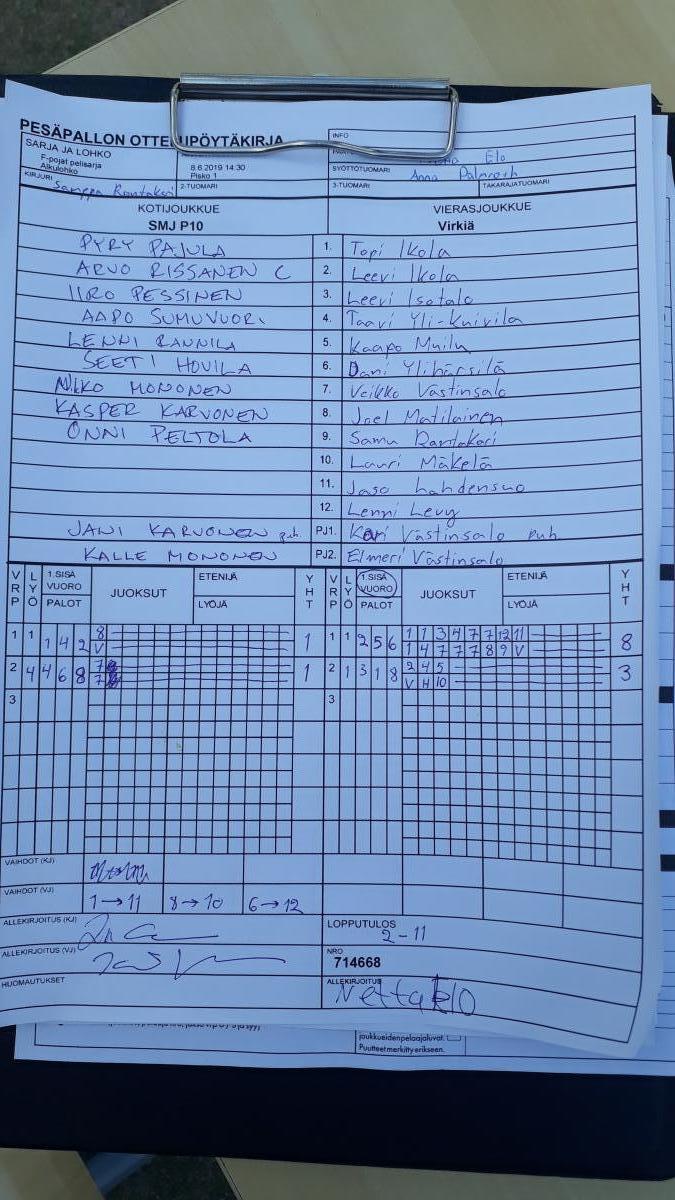 PESÄPALLON OTTELUPÖYTÄKIRJA
INFO
SARJA JA LOHKO
F-pojat pelisarja
Alkulohko
8.6.2019 14:30
Pisko 1
Elo
SYÖTTÖTUOMARI
Anna Palmroth
KIRJURI
Samppa Rantakari
2-TUOMARI
3-TUOMARI
TAKARAJATUOMARI
KOTIJOUKKUE
SMJ P10
VIERASJOUKKUE
Virkiä
PYRY PAJULA 1. Topi Ikola
ARVO RISSANEN C 2. Leevi Ikola
IIRO PESSINEN 3. Leevi Isotalo
AAPO SUMUVUORI 4. Taavi Yli-Kuivila
LENNI RANNILA 5. Kaapo Muilu
SEETI HOVILA 6. Dani Ylihärsilä
NIKO MONONEN 7. Veikko Västinsalo
KASPER KARVONEN 8. Joel Matilainen
ONNI PELTOLA 9. Samu Rantakari
10. Lauri Mäkelä
11. Jaso Lahdensuo
12. Lenni Levy
JANI KARVONEN puh. PJ1. Kari Västinsalo puh
KALLE MONONEN PJ2. Elmeri Västinsalo
VRP LYÖ 1.SISÄ VUORO PALOT JUOKSUT ETENIJÄ LYÖJÄ YHT VRP LYÖ 1.SISÄ VUORO PALOT JUOKSUT ETENIJÄ LYÖJÄ YHT
1 1 1 4 2 8 1 1 1 2 5 6 1 1 3 4 7 7 12 11 8
V 1 4 7 7 7 8 9 V
2 4 4 6 8 7 1 2 1 3 1 8 2 4 5 3
7 V H 10
3 3
VAIHDOT (KJ)
VAIHDOT (VJ) 1→11 8→10 6→12
ALLEKIRJOITUS (KJ)
LOPPUTULOS
2-11
ALLEKIRJOITUS (VJ)
NRO
714668
HUOMAUTUKSET
ALLEKIRJOITUS
Netta Elo
joukkueidenpelaajaluvat.
Puutteet merkitty erikseen.